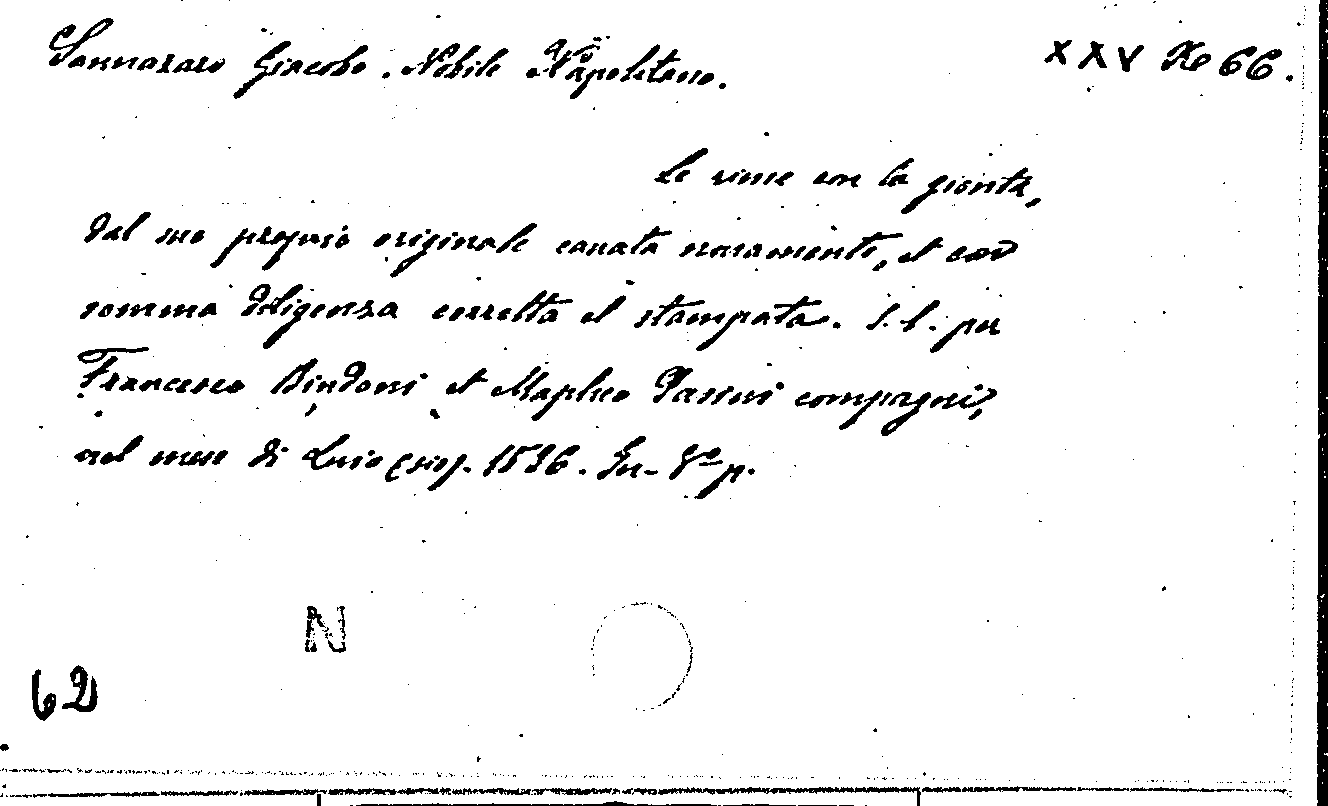 Sannazaro Giacobo. Nobile Napolitano.
XXV Xe 66.
Le rime con la gionta,
dal suo proprio originale cavata novamente, et con
somma diligenza corretta et stampata. S. l. per
Francesco Bindoni et Mapheo Pasini compagni,
nel mese di 1536. In-8° p.
N
62